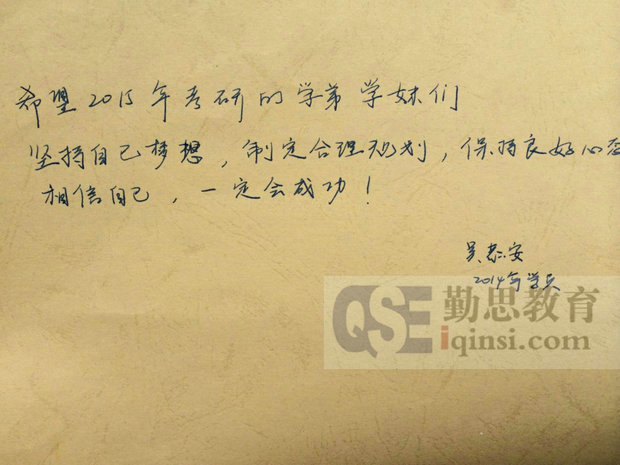 希望2015年考研的学弟学妹们
坚持自己梦想，制定合理规划，保持良好心态
相信自己，一定会成功！
吴恭安
2014年学员
QSE 勤思教育
iqinsi.com